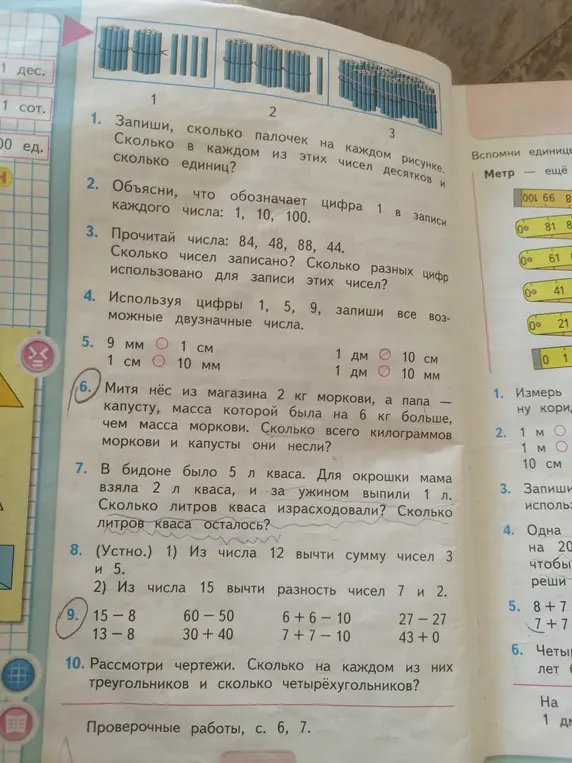 1 дес.
1 сот.
00 ед.
1
2
3
1. Запиши, сколько палочек на каждом рисунке.
Сколько в каждом из этих чисел десятков и
сколько единиц?
2. Объясни, что обозначает цифра 1 в записи
каждого числа: 1, 10, 100.
3. Прочитай числа: 84, 48, 88, 44.
Сколько чисел записано? Сколько разных цифр
использовано для записи этих чисел?
4. Используя цифры 1, 5, 9, запиши все воз-
можные двузначные числа.
5. 9 мм ○ 1 см 1 дм ○ 10 см
1 см ○ 10 мм 1 дм ○ 10 мм
6. Митя нёс из магазина 2 кг моркови, а папа —
капусту, масса которой была на 6 кг больше,
чем масса моркови. Сколько всего килограммов
моркови и капусты они несли?
7. В бидоне было 5 л кваса. Для окрошки мама
взяла 2 л кваса, и за ужином выпили 1 л.
Сколько литров кваса израсходовали? Сколько
литров кваса осталось?
8. (Устно.) 1) Из числа 12 вычти сумму чисел 3
и 5.
2) Из числа 15 вычти разность чисел 7 и 2.
9. 15 − 8 60 − 50 6 + 6 − 10 27 − 27
13 − 8 30 + 40 7 + 7 − 10 43 + 0
10. Рассмотри чертежи. Сколько на каждом из них
треугольников и сколько четырёхугольников?
Проверочные работы, с. 6, 7.
Вспомни единицы
Метр — ещё
100 99 9
0 81 8
0 61
0 41
0 21
0 1
1. Измерь
ну корид
2. 1 м ○
1 м ○
10 см
3. Запиши
использ
4. Одна
на 20
чтобы
реши
5. 8 + 7
7 + 7
6. Четы
лет
На
1 дм